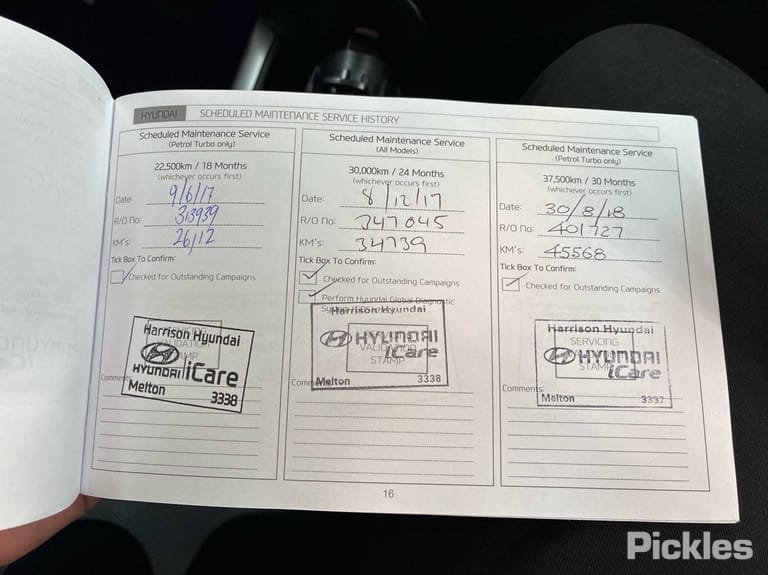 HYUNDAI SCHEDULED MAINTENANCE SERVICE HISTORY
Scheduled Maintenance Service
(Petrol Turbo only)
22,500km / 18 Months
(whichever occurs first)
Date: 9/6/17
R/O No: 313939
KM's: 26112
Tick Box To Confirm:
Checked for Outstanding Campaigns
Harrison Hyundai
HYUNDAI iCare
Melton 3338
Comments:
Scheduled Maintenance Service
(All Models)
30,000km / 24 Months
(whichever occurs first)
Date: 8/12/17
R/O No: 347045
KM's: 34739
Tick Box To Confirm:
Checked for Outstanding Campaigns
Perform Hyundai Global Diagnostic
System
Harrison Hyundai
HYUNDAI
VALIDATION
iCare
STAMP
Melton 3338
Scheduled Maintenance Service
(Petrol Turbo only)
37,500km / 30 Months
(whichever occurs first)
Date: 30/8/18
R/O No: 401727
KM's: 45568
Tick Box To Confirm:
Checked for Outstanding Campaigns
Harrison Hyundai
SERVICING
HYUNDAI
STAMP
iCare
Comments:
Melton 3337
16
Pickles